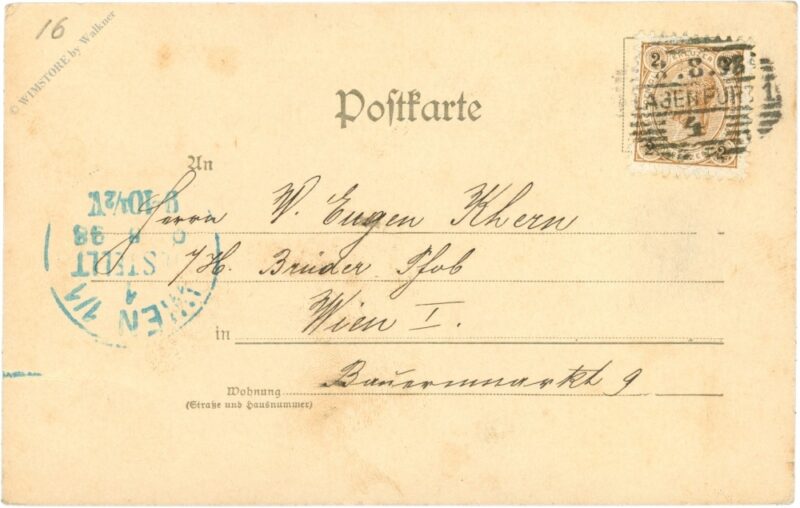 16
© WIMSTORE by Walkner
2 2
8.98
LAGENFURT 1
4
2 2
Postkarte
An
Herrn W. Eugen Khern
7/H. Brüder Pfob
in Wien I.
Wohnung Bauernmarkt 9
(Straße und Hausnummer)
WIEN 1/1
1
BESTELLT
8 98
9-10½V